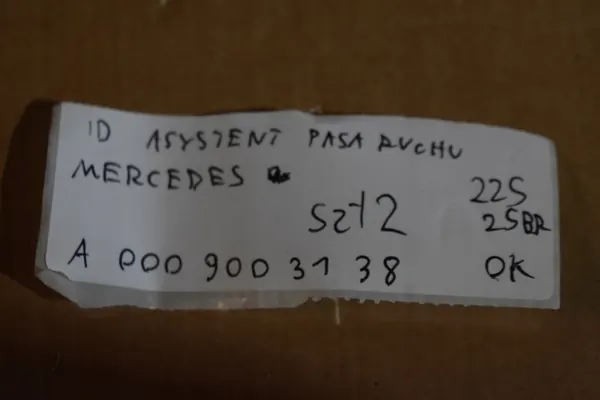 ID ASYSTENT PASA RUCHU
MERCEDES
szt2
22S
2SBR
A 000 900 31 38
OK